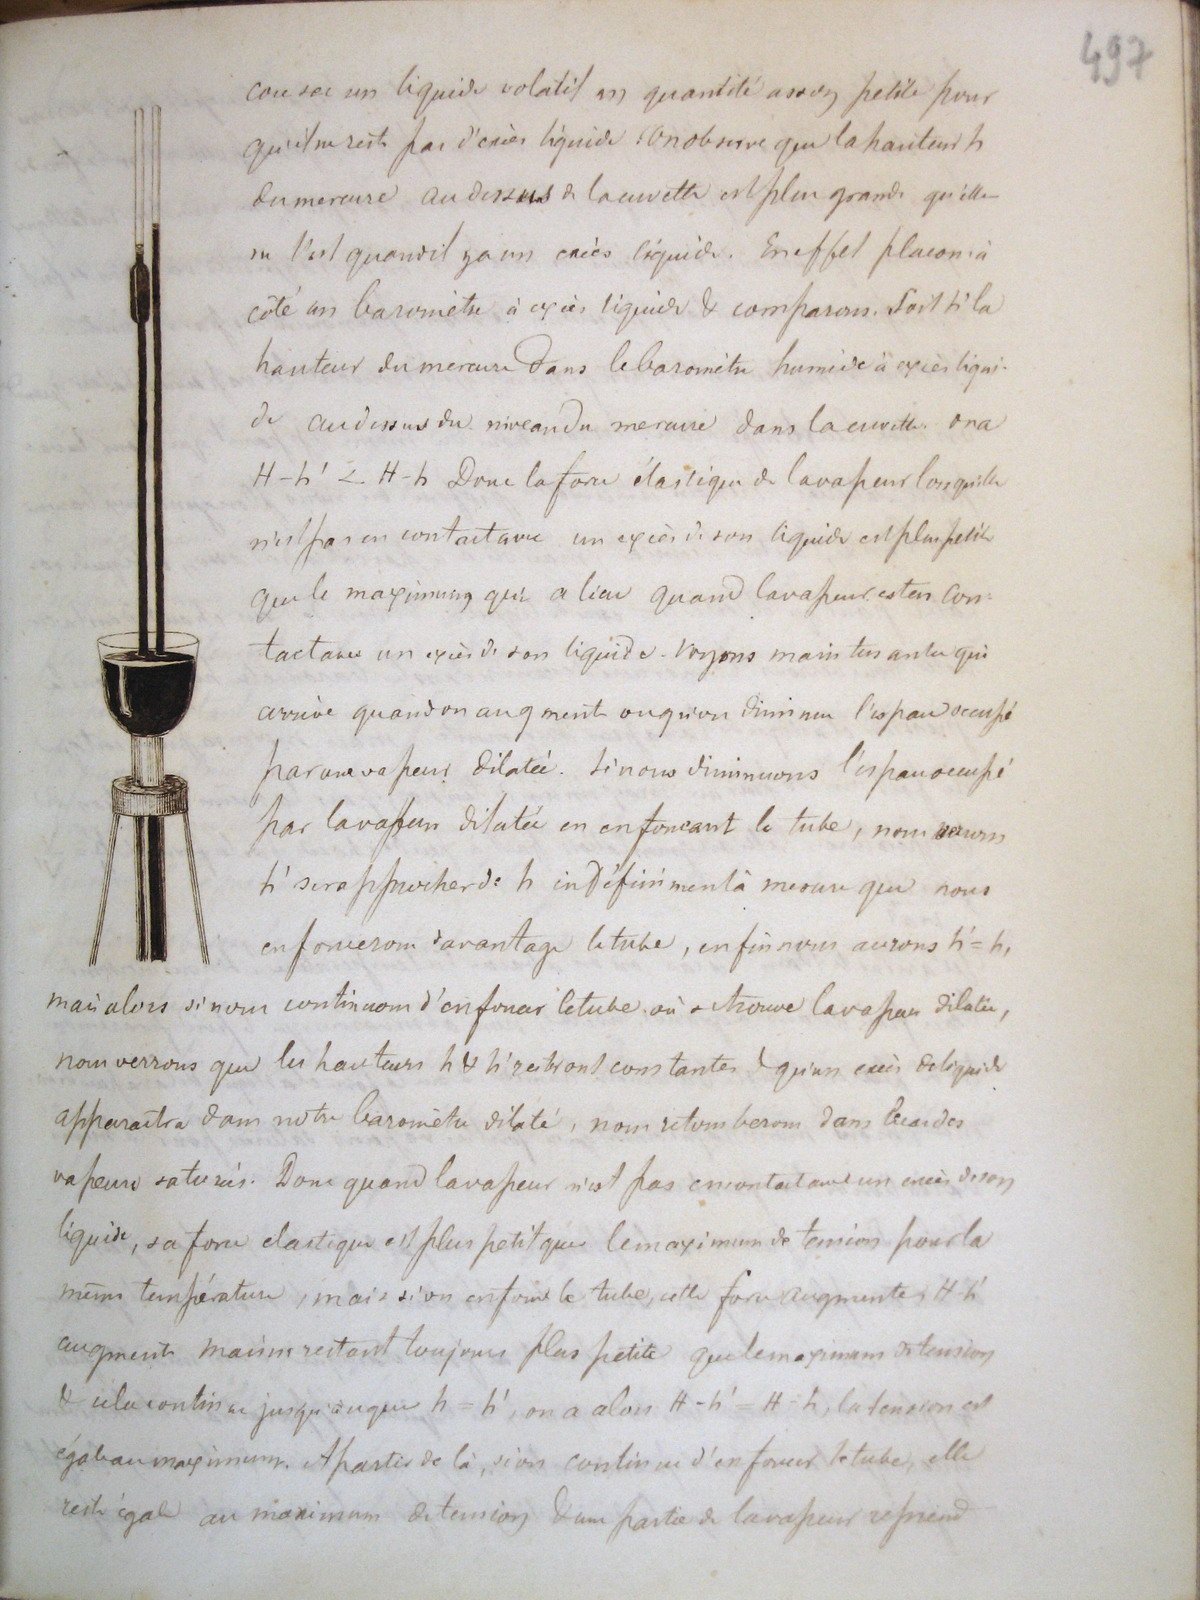 497
encore un liquide volatil en quantité assez petite pour
qu'il ne reste pas d'excès liquide. On observe que la hauteur h
du mercure au dessus de la cuvette est plus grande qu'elle
ne l'est quand il y a un excès liquide. En effet plaçons à
côté un baromètre à excès liquide & comparons. Soit h' la
hauteur du mercure dans le baromètre humide à excès liqui-
de au dessus du niveau du mercure dans la cuvette. on a
H-h' < H-h Donc la force élastique de la vapeur lorsqu'elle
n'est pas en contact avec un excès de son liquide est plus petite
que le maximum qui a lieu quand la vapeur est en con-
tact avec un excès de son liquide. Voyons maintenant ce qui
arrive quand on augmente ou qu'on diminue l'espace occupé
par une vapeur dilatée. Si nous diminuons l'espace occupé
par la vapeur dilatée en enfonçant le tube, nous verrons
h' se rapprocher de h indéfiniment à mesure que nous
enfoncerons davantage le tube, enfin nous aurons h' = h,
mais alors si nous continuons d'enfoncer le tube où se trouve la vapeur dilatée,
nous verrons que les hauteurs h & h' resteront constantes & qu'un excès de liquide
apparaîtra dans notre baromètre dilaté, nous retomberons dans le cas des
vapeurs saturés. Donc quand la vapeur n'est pas en contact avec un excès de son
liquide, sa force elastique est plus petit que le maximum de tension pour la
même température, mais si on enfonce le tube, cette force augmente, H-h'
augmente mais en restant toujours plus petite que le maximum de tension
& cela continue jusqu'à ce que h = h', on a alors H-h' = H-h, la tension est
égale au maximum. A partir de là, si on continue d'enfoncer le tube, elle
reste égale au maximum de tension & une partie de la vapeur reprend